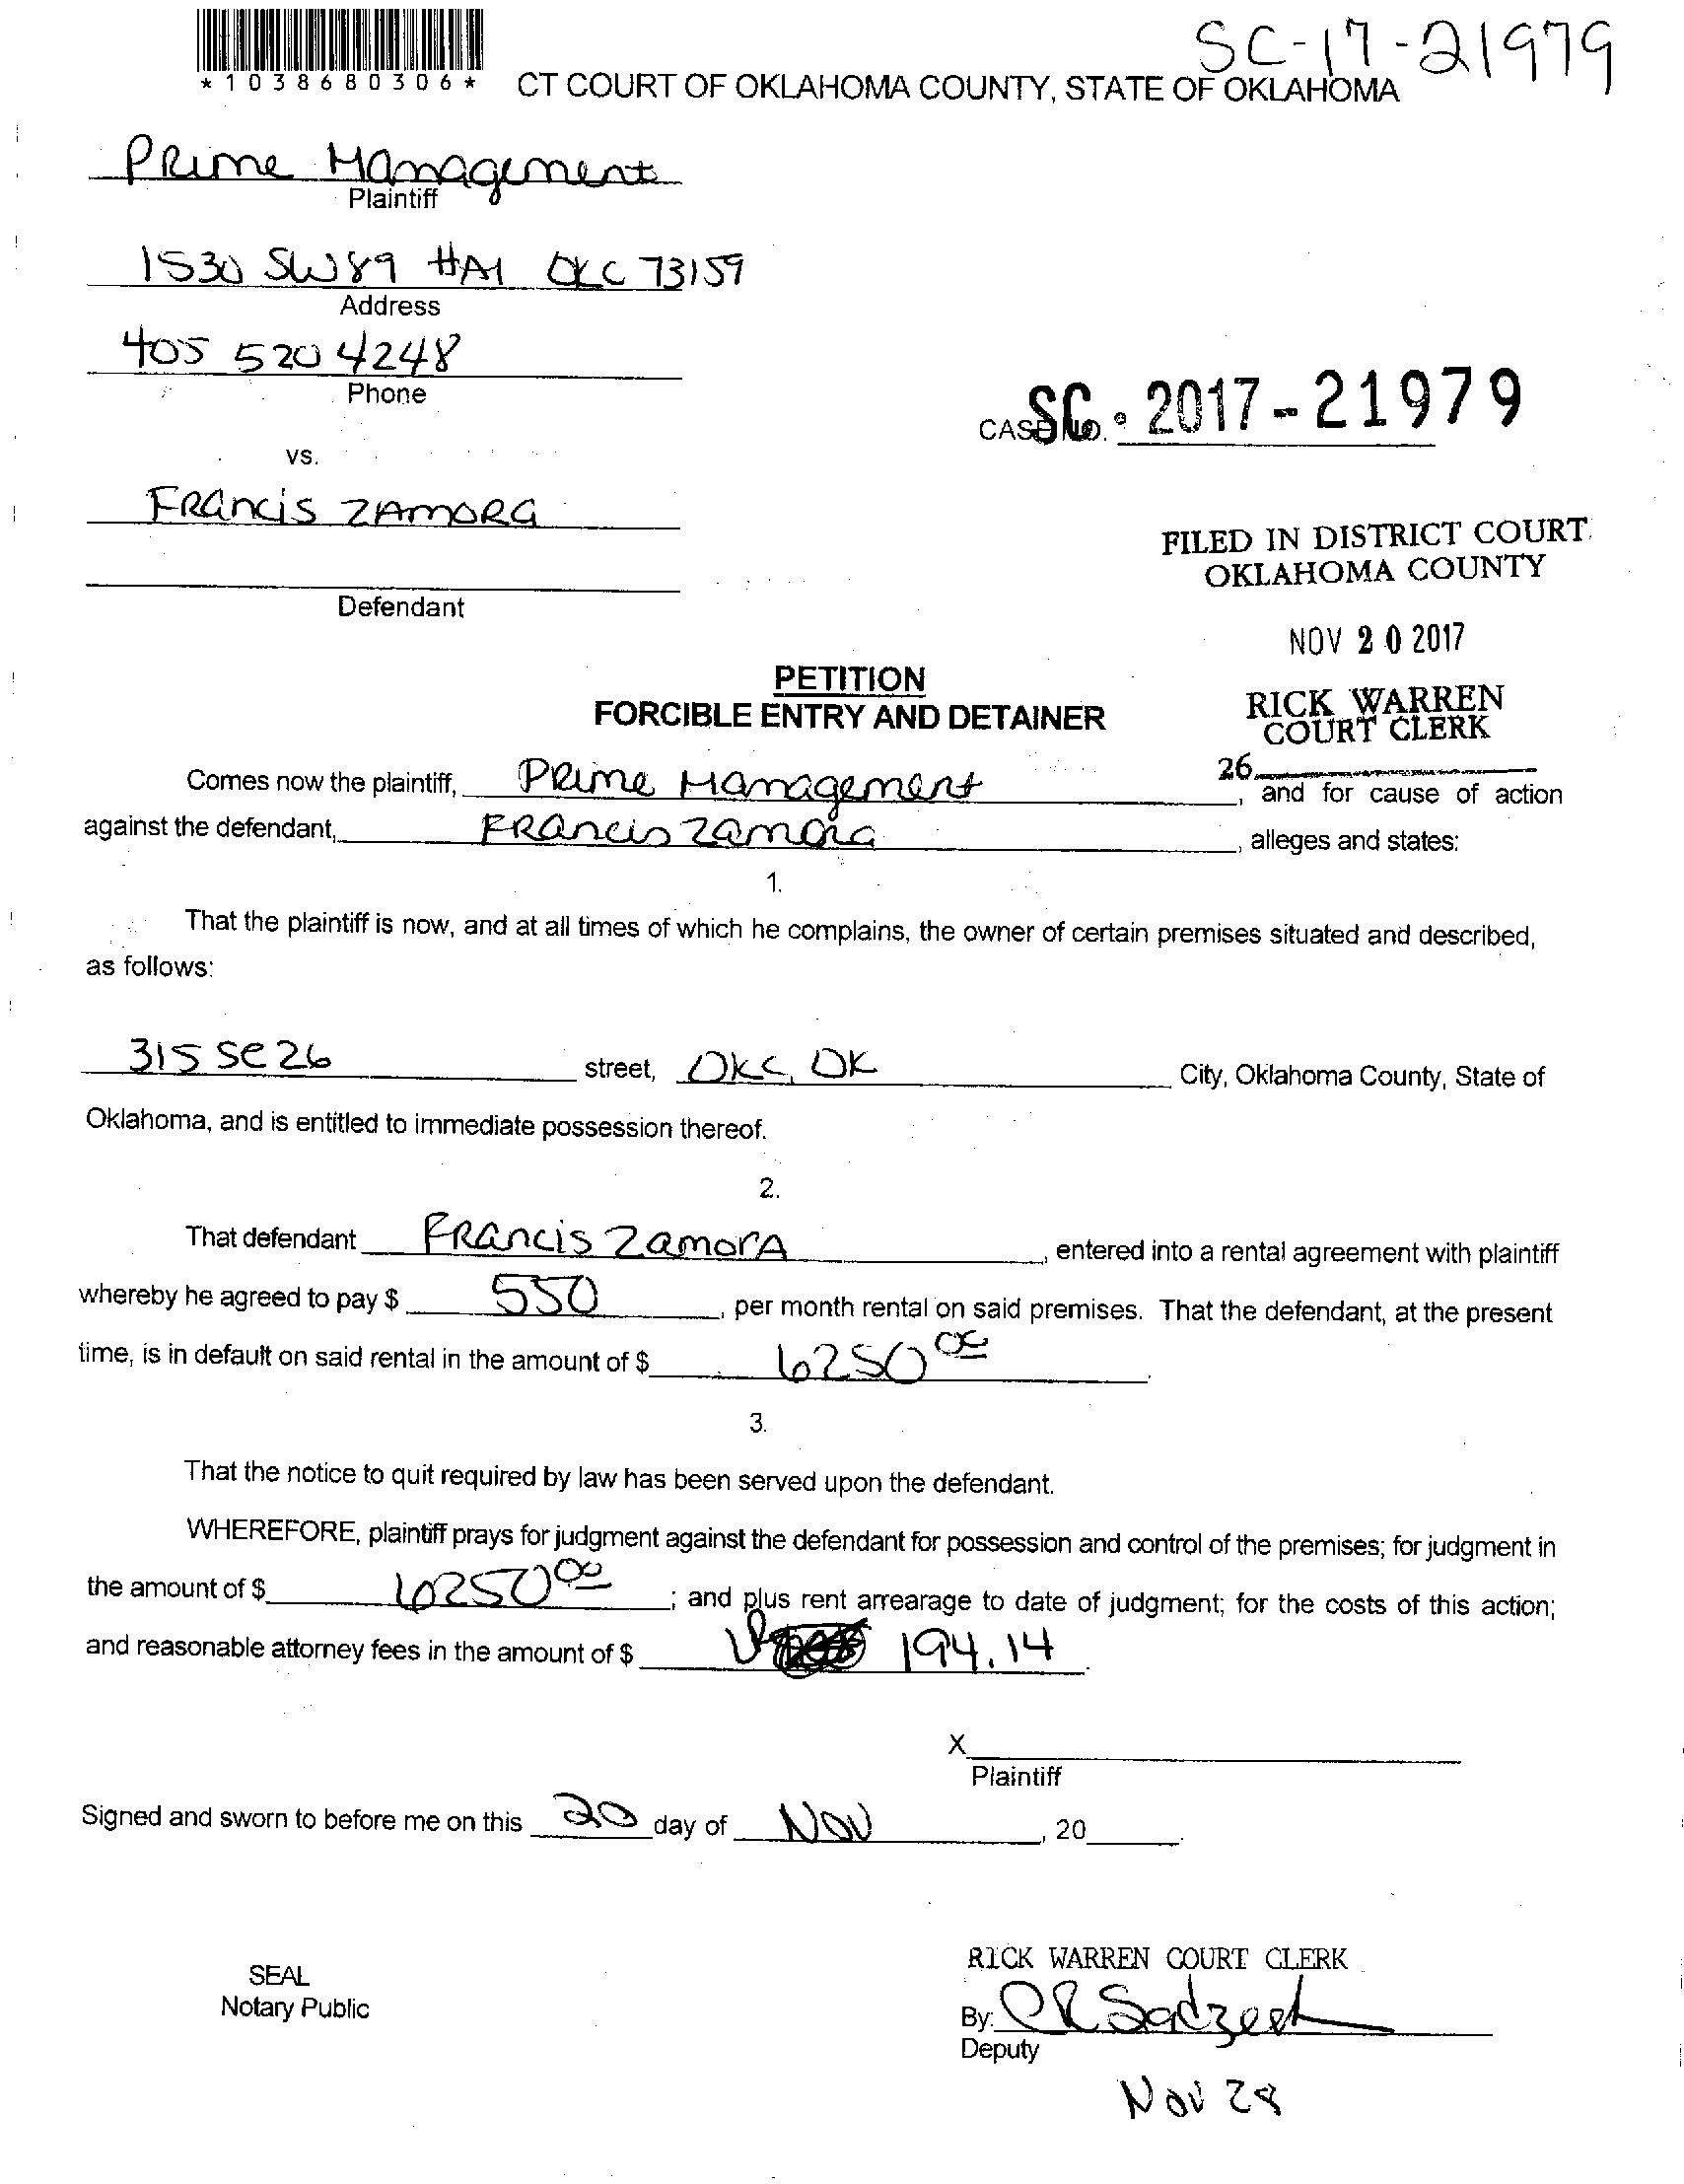 SC-17-21979
*1038680306*
CT COURT OF OKLAHOMA COUNTY, STATE OF OKLAHOMA
Prime Management
Plaintiff
1530 SW 89 #A1 OKC 73159
Address
405 520 4248
Phone
CASE NO. SC - 2017-21979
vs.
Francis Zamora
FILED IN DISTRICT COURT
OKLAHOMA COUNTY
Defendant
NOV 20 2017
PETITION
FORCIBLE ENTRY AND DETAINER
RICK WARREN
COURT CLERK
26
Comes now the plaintiff, Prime Management, and for cause of action
against the defendant, Francis Zamora, alleges and states:
1.
That the plaintiff is now, and at all times of which he complains, the owner of certain premises situated and described,
as follows:
315 SE 26 street, OKC, OK City, Oklahoma County, State of
Oklahoma, and is entitled to immediate possession thereof.
2.
That defendant Francis Zamora, entered into a rental agreement with plaintiff
whereby he agreed to pay $ 550, per month rental on said premises. That the defendant, at the present
time, is in default on said rental in the amount of $ 6250 00.
3.
That the notice to quit required by law has been served upon the defendant.
WHEREFORE, plaintiff prays for judgment against the defendant for possession and control of the premises; for judgment in
the amount of $ 6250 00; and plus rent arrearage to date of judgment; for the costs of this action;
and reasonable attorney fees in the amount of $ 194.14.
X
Plaintiff
Signed and sworn to before me on this 20 day of Nov, 20
SEAL
Notary Public
RICK WARREN COURT CLERK
By:
Deputy
Nov 28